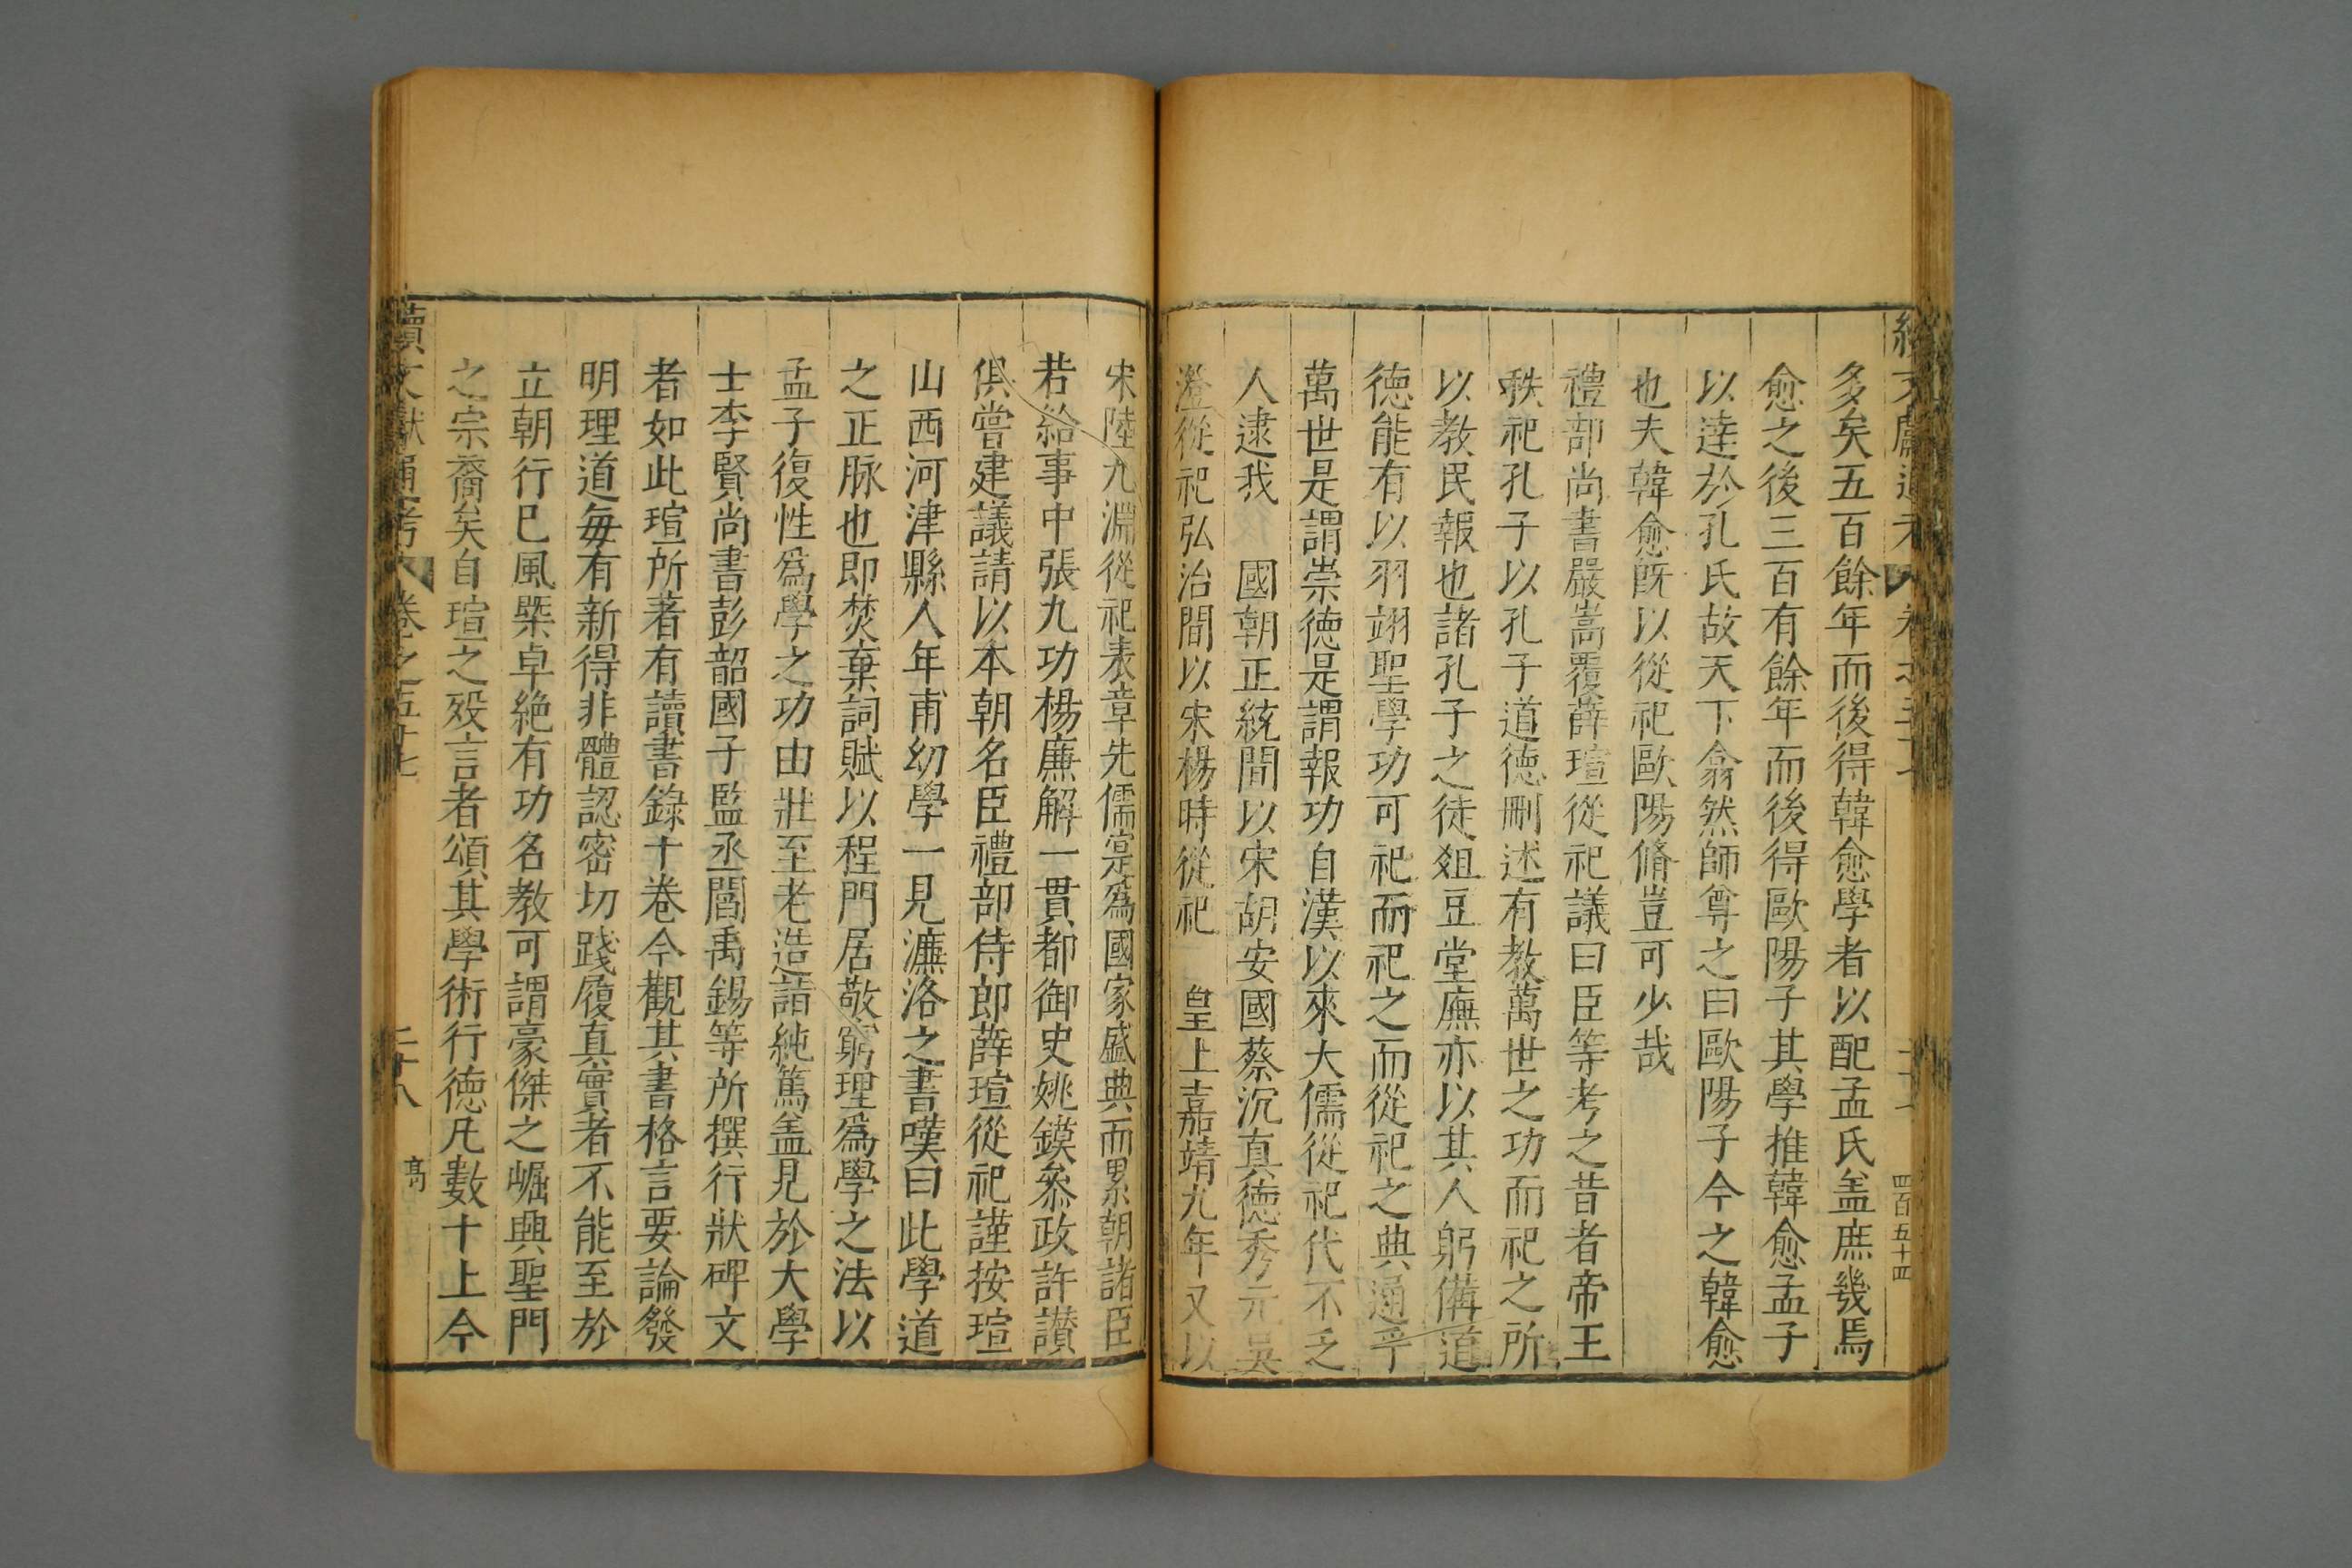 多矣五百餘年而後得韓愈學者以配孟氏盖庶幾焉
愈之後三百有餘年而後得歐陽子其學推韓愈孟子
以達於孔氏故天下翕然師尊之曰歐陽子今之韓愈
也夫韓愈旣以從祀歐陽脩豈可少哉
禮部尚書嚴嵩覆薛瑄從祀議曰臣等考之昔者帝王
秩祀孔子以孔子道德刪述有教萬世之功而祀之所
以教民報也諸孔子之徒俎豆堂廡亦以其人躬備道
德能有以羽翊聖學功可祀而祀之而從祀之典通乎
萬世是謂崇德是謂報功自漢以來大儒從祀代不乏
人逮我 國朝正統間以宋胡安國蔡沉真德秀元吳
澄從祀弘治間以宋楊時從祀 皇上嘉靖九年又以
宋陸九淵從祀表章先儒寔爲國家盛典而累朝諸臣
若給事中張九功楊廉解一貫都御史姚鏌叅政許讃
俱嘗建議請以本朝名臣禮部侍郎薛瑄從祀謹按瑄
山西河津縣人年甫幼學一見濂洛之書嘆曰此學道
之正脉也即焚棄詞賦以程門居敬窮理爲學之法以
孟子復性爲學之功由壯至老造詣純篤盖見於大學
士李賢尚書彭韶國子監丞閻禹錫等所撰行狀碑文
者如此瑄所著有讀書錄十卷今觀其書格言要論發
明理道每有新得非體認密切踐履真實者不能至於
立朝行巳風槩卓絶有功名教可謂豪傑之崛興聖門
之宗裔矣自瑄之殁言者頌其學術行德凡數十上今
續文獻通考 卷之五十七 二十八 髙
四百五十四